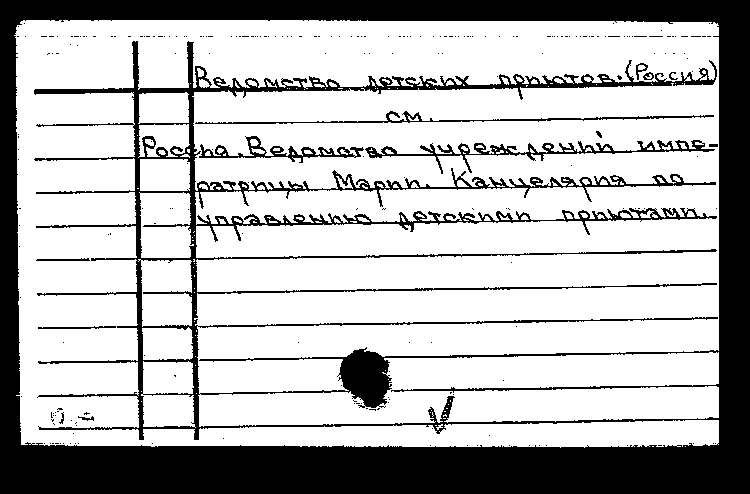 Ведомство детских приютов. (Россия)
см.
Россия. Ведомство учреждений импе-
ратрицы Марии. Канцелярия по
управлению детскими приютами.